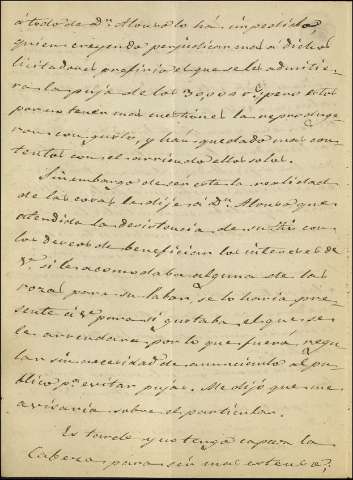 á todo de Dⁿ. Alonso lo há impedido,
quien creyendo perjudicar mas a dichos
licitadores, preferia el que se les admitie-
ra la puja de los 30,000 rˢ, pero estos
por no tener mas cuestiones la
con gusto, y hán quedado mas con-
tentos con el arriendo ellos solos.
Sin embargo de ser esta la realidad
de las cosas le dije á Dⁿ. Alonso que
atendida la desistencia de su tio con
los deseos de beneficiar los intereses de
Vᵈ. si le acomodaba alguna de las
rozas para su labor, se lo haria pre-
sente á Vᵈ para si gustaba el que se
le arrendara por lo que fuera regu-
lar sin necesidad de anunciarlo al pú-
blico pᵃ evitar pujas. Me dijo que me
avisaria sobre el particular.
Es tarde y no tengo capaz la
Cabeza para ser mas estenso;